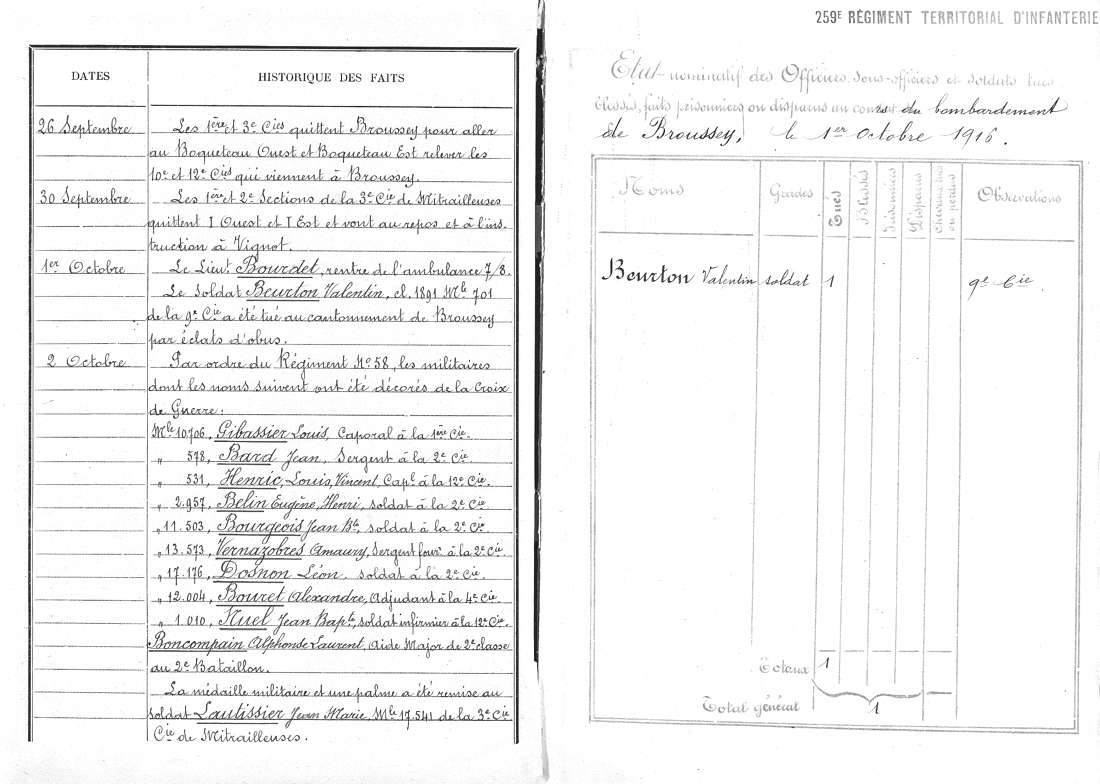 DATES
HISTORIQUE DES FAITS
26 Septembre
Les 1ère et 3e Cies quittent Broussey pour aller
au Boqueteau Ouest et Boqueteau Est relever les
10e et 12e Cies qui viennent à Broussey.
30 Septembre
Les 1ère et 2e Sections de la 3e Cie de Mitrailleuses
quittent I Ouest et I Est et vont au repos et à l'ins.
truction à Vignot.
1er Octobre
Le Lieut. Bourdet, rentre de l'ambulance 7/8.
Le Soldat Beurton Valentin, cl. 1891 Mle 701
de la 9e Cie a été tué au cantonnement de Broussey
par éclats d'obus.
2 Octobre
Par ordre du Régiment No 58, les militaires
dont les noms suivent ont été décorés de la Croix
de Guerre:
Mle 10.706, Gibassier Louis, Caporal à la 1ère Cie.
" 578, Bard Jean, Sergent à la 2e Cie
" 531, Henric, Louis, Vincent, Capl à la 12e Cie.
" 2.957, Belin Eugène, Henri, soldat à la 2e Cie
" 11.503, Bourgeois Jean Bte, soldat à la 2e Cie.
" 13.573, Vernazobres Amaury, Sergent four. à la 2e Cie.
" 17.176, Dosnon Léon, soldat à la 2e Cie.
" 12.004, Bouret Alexandre, Adjudant à la 4e Cie.
" 1.010, Nuel Jean Bapte, soldat infirmier à la 12e Cie.
Boncompain Alphonse Laurent, Aide Major de 2e classe
au 2e Bataillon.
La médaille militaire et une palme a été remise au
soldat Lautissier Jean Marie, Mle 17.541 de la 3e Cie
Cie de Mitrailleuses.
259E RÉGIMENT TERRITORIAL D'INFANTERIE
Etat nominatif des Officiers, sous-officiers et soldats tués
blessés, faits prisonniers ou disparus au cours du bombardement
de Broussey, le 1er Octobre 1916.
Noms
Grades
Tués
Blessés
Prisonniers
Disparus
Observations
Beurton Valentin soldat 1 9e Cie.
Totaux 1
Total général 1